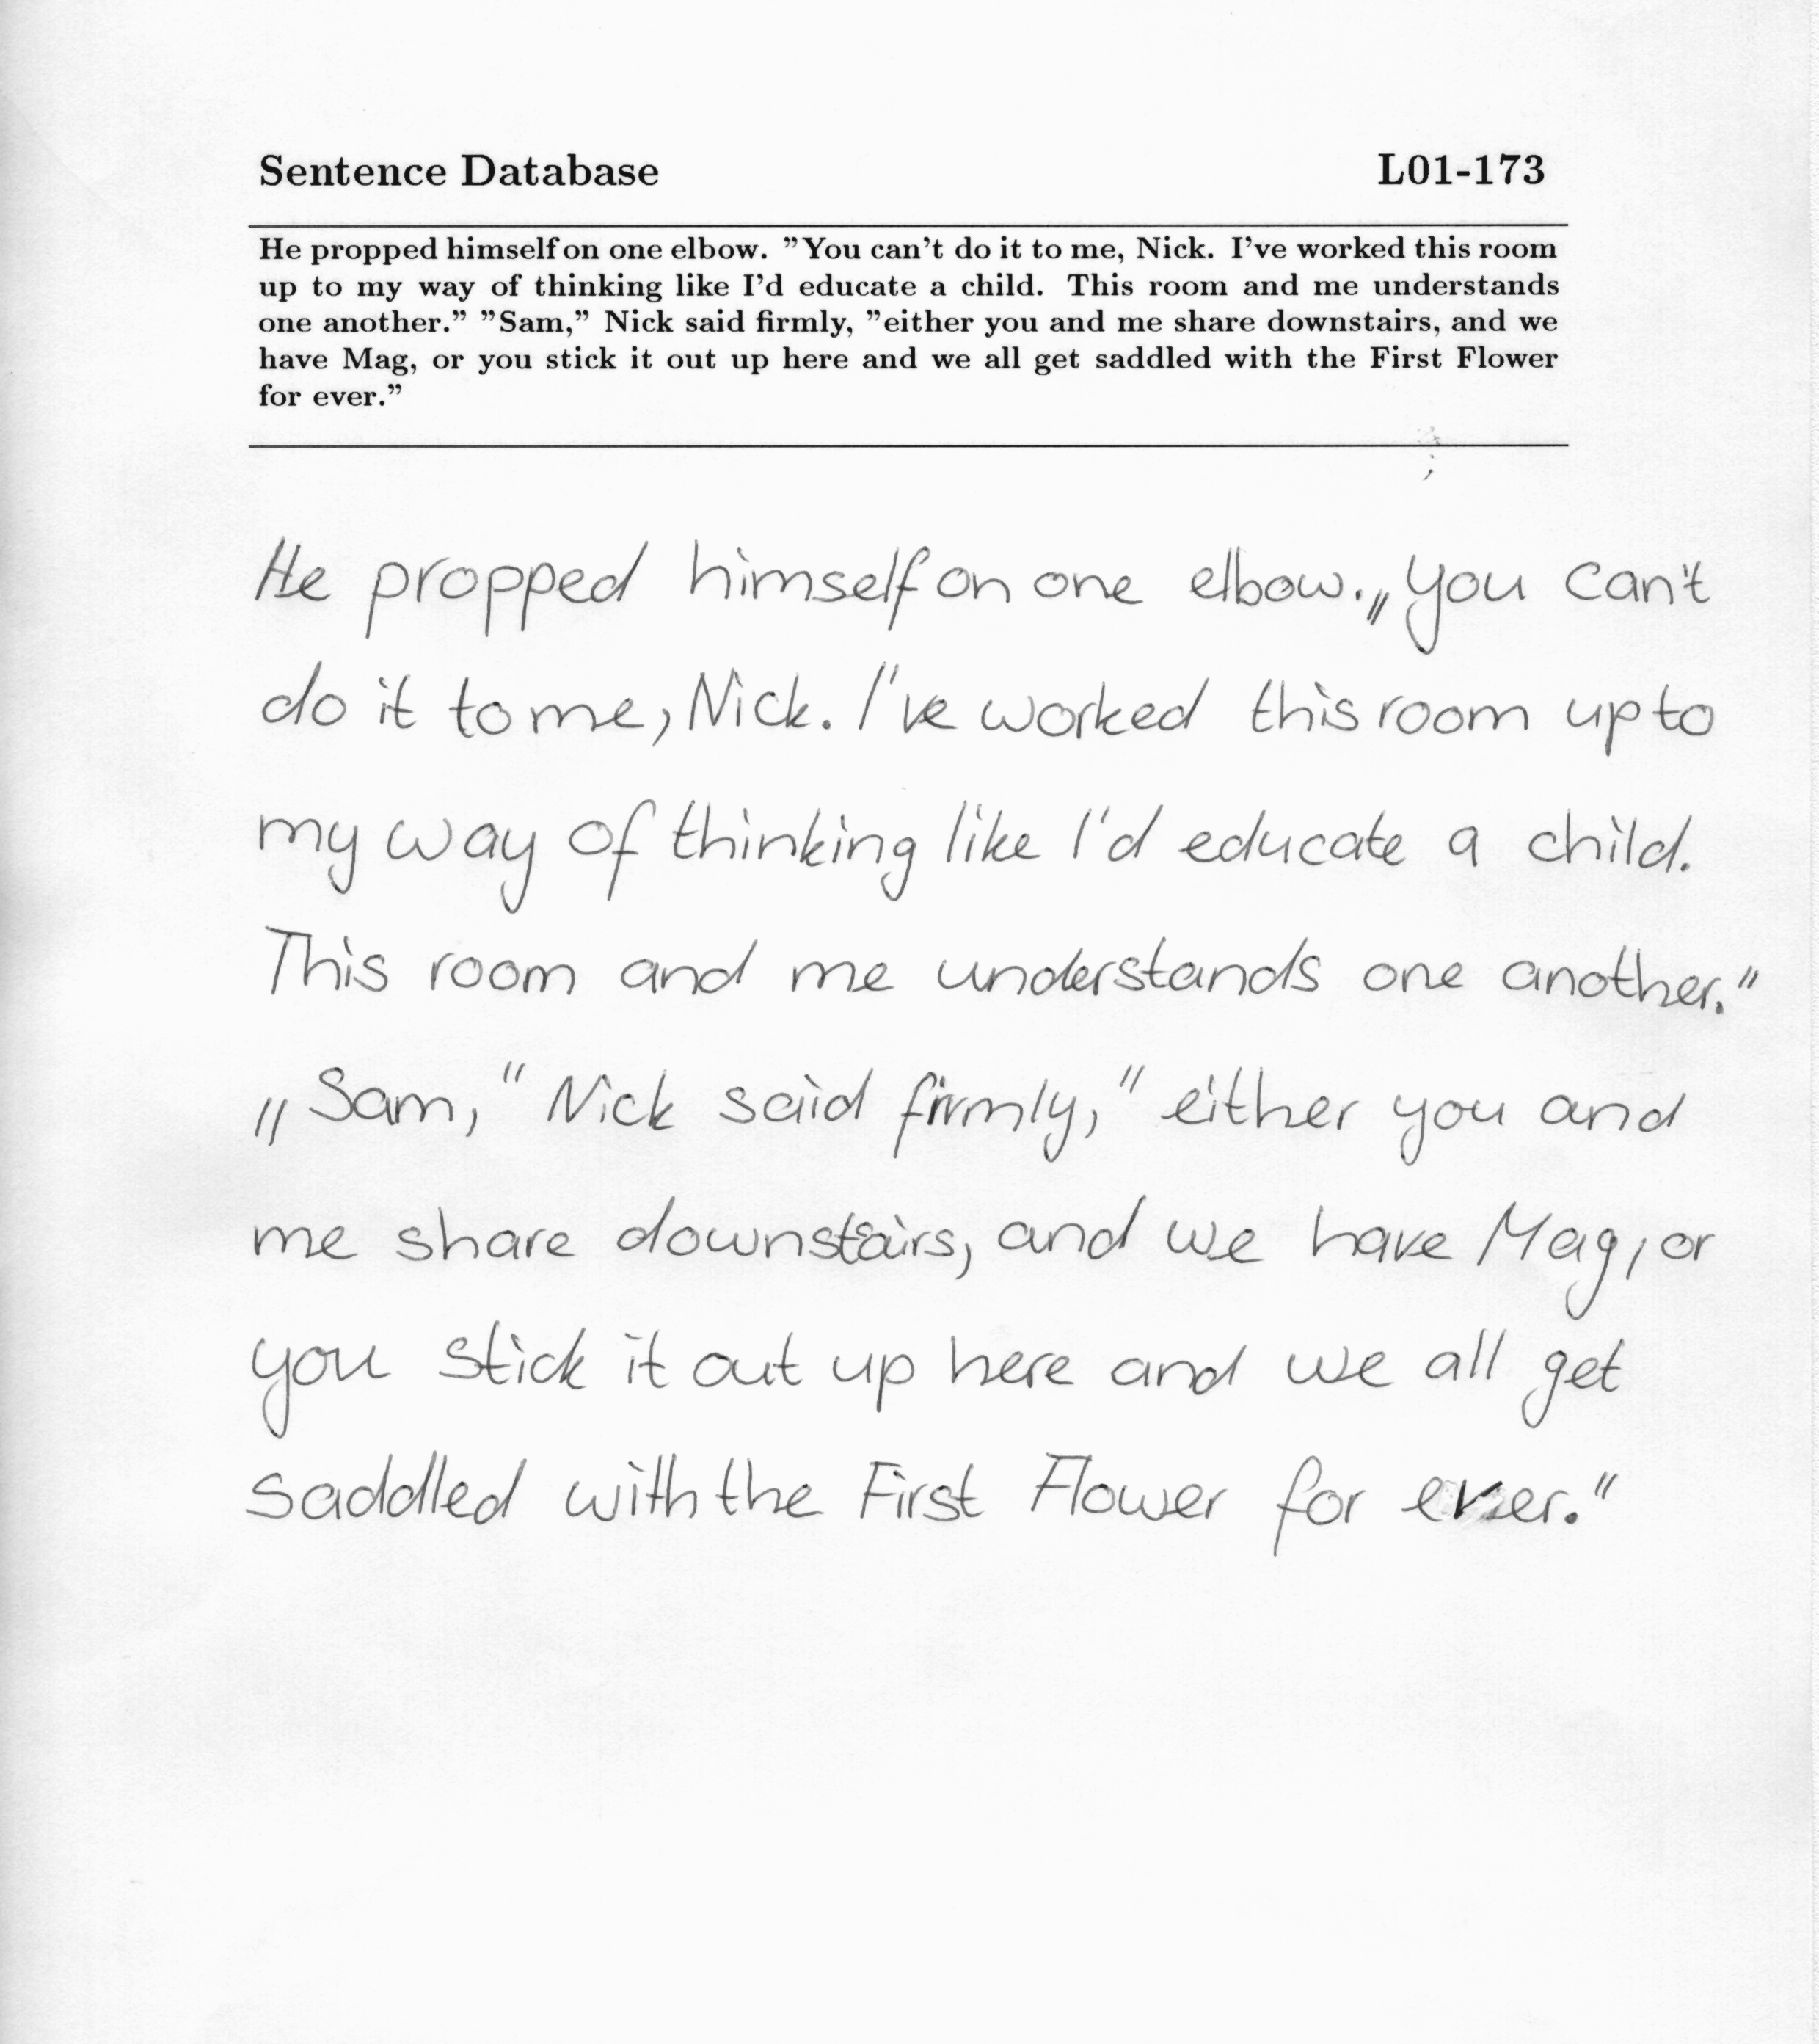 Sentence Database L01-173
He propped himself on one elbow. ”You can’t do it to me, Nick. I’ve worked this room
up to my way of thinking like I’d educate a child. This room and me understands
one another.” ”Sam,” Nick said firmly, ”either you and me share downstairs, and we
have Mag, or you stick it out up here and we all get saddled with the First Flower
for ever.”
He propped himself on one elbow. „You can't
do it to me, Nick. I've worked this room up to
my way of thinking like I'd educate a child.
This room and me understands one another."
„Sam," Nick said firmly," either you and
me share downstairs, and we have Mag, or
you stick it out up here and we all get
saddled with the First Flower for ever."